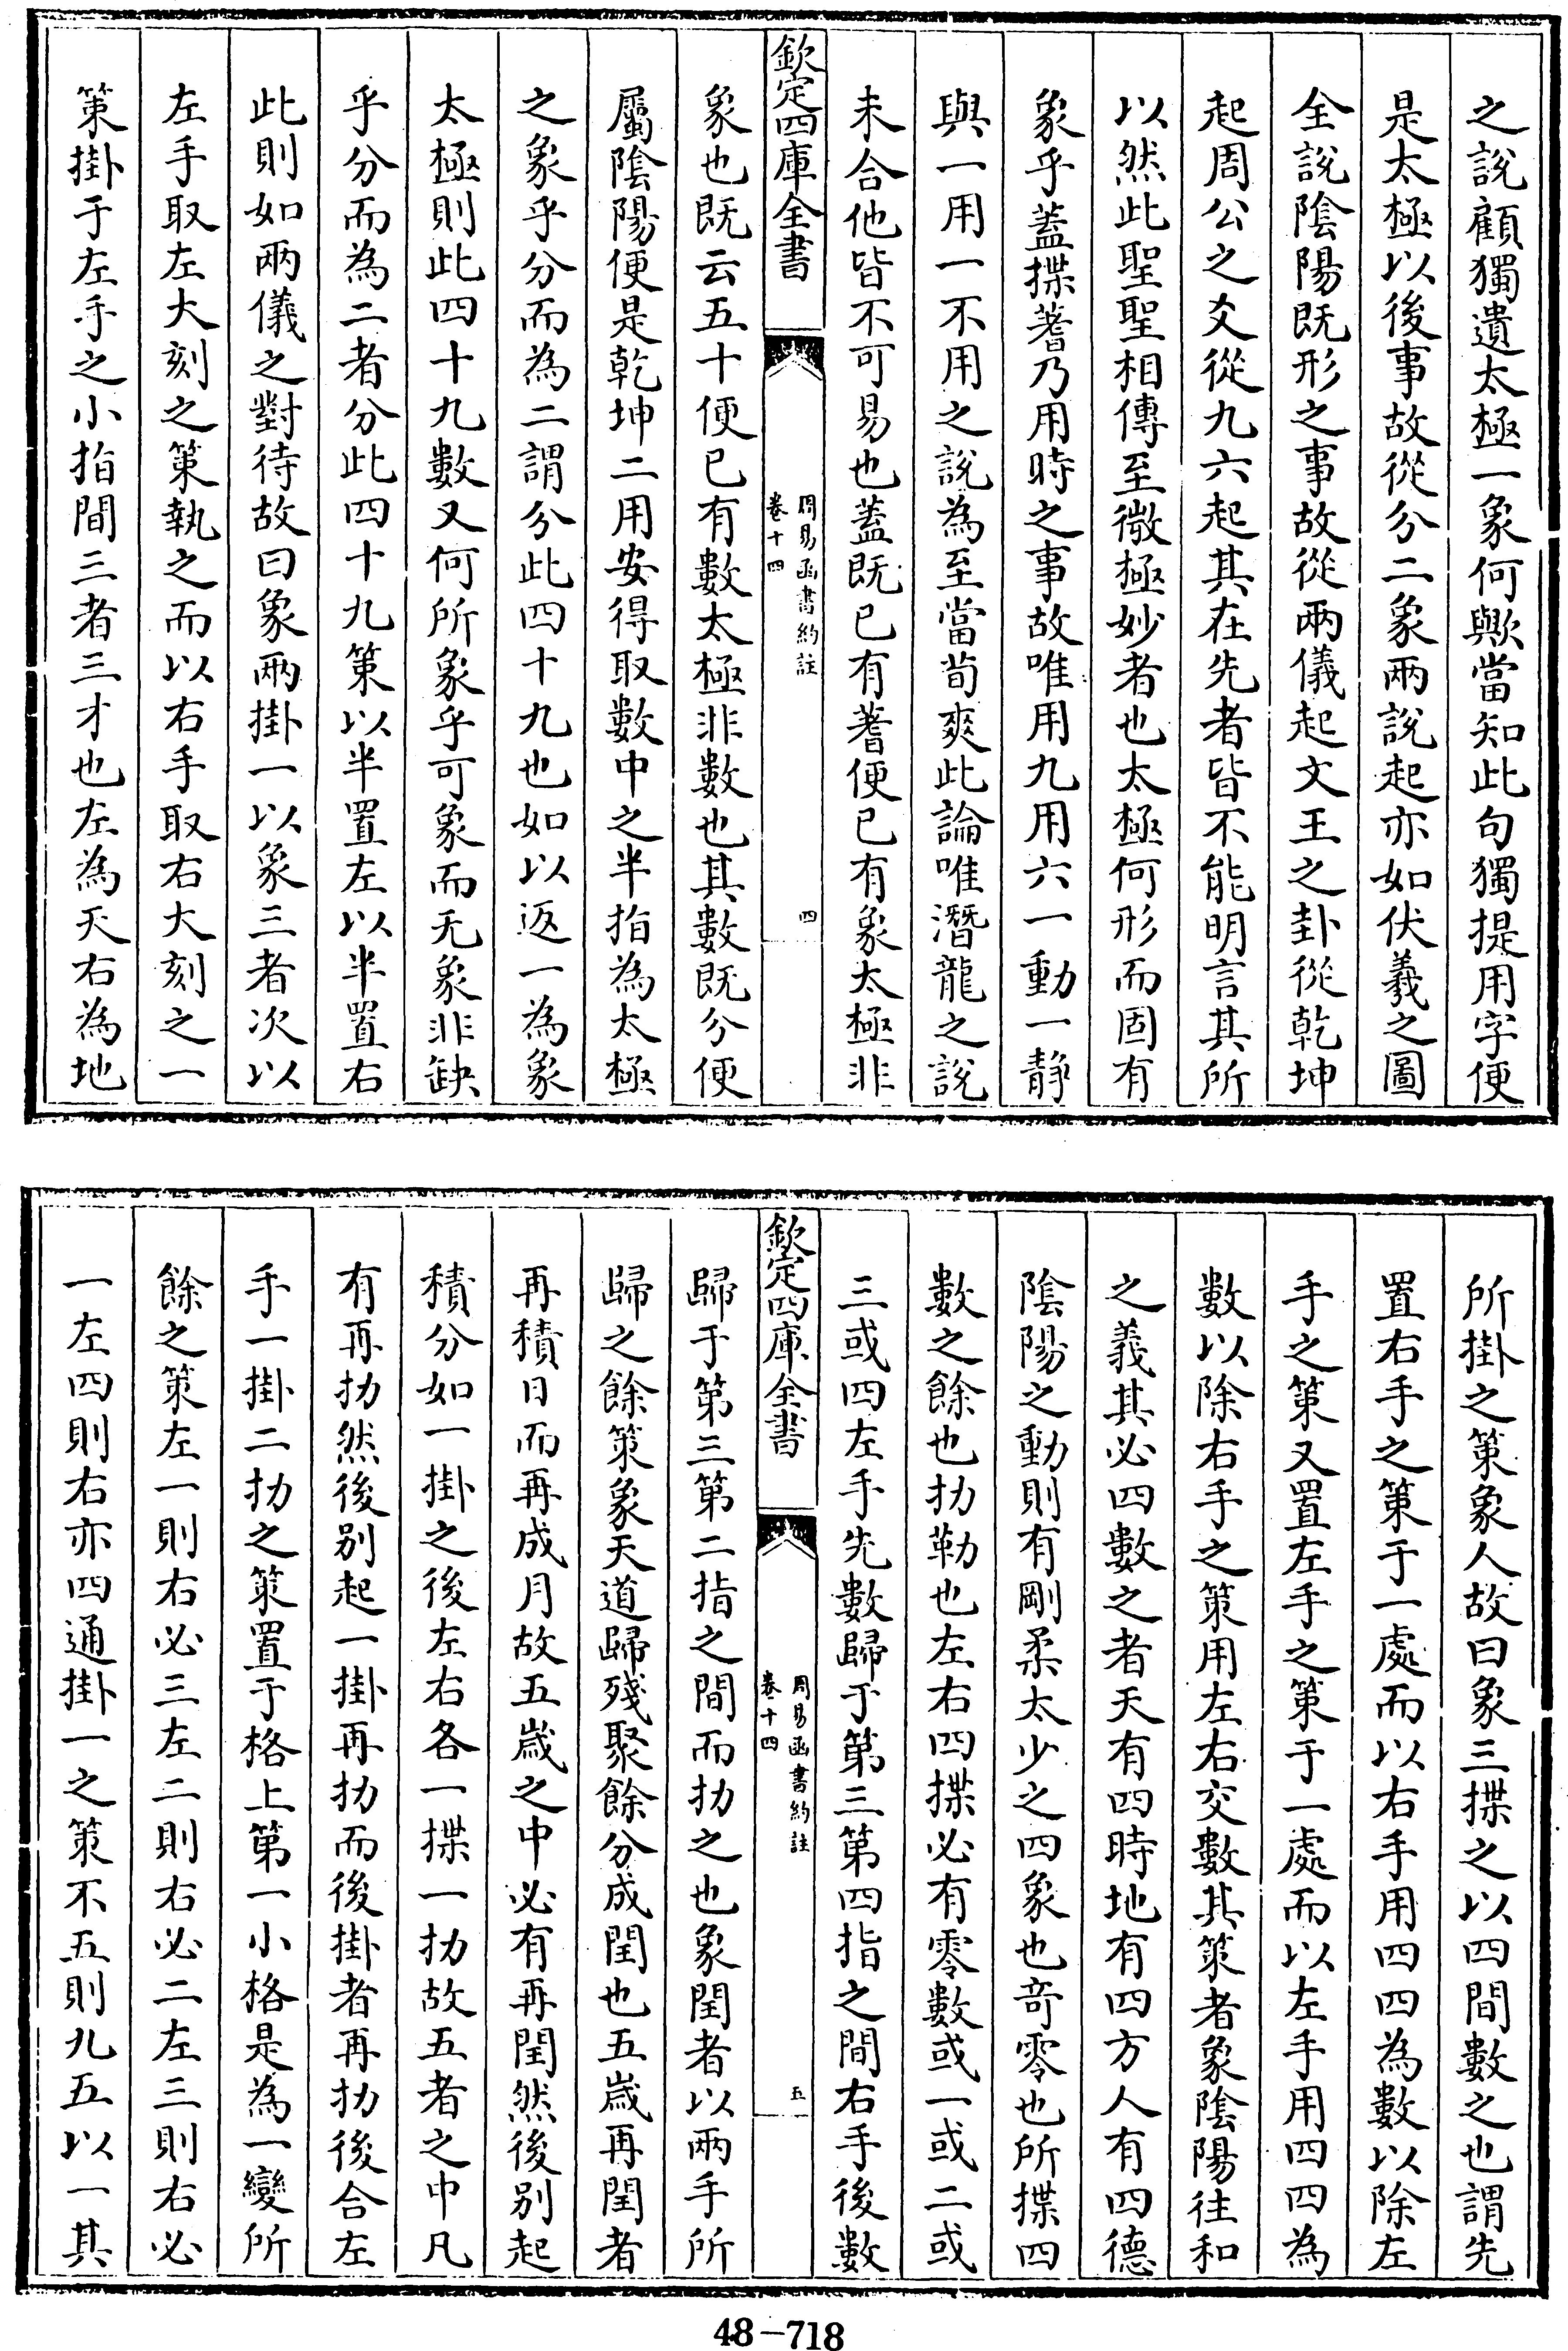 之說顧獨遺太極一象何歟當知此句獨提用字便
是太極以後事故從分二象兩說起亦如伏羲之圖
全說陰陽既形之事故從兩儀起文王之卦從乾坤
起周公之爻從九六起其在先者皆不能明言其所
以然此聖聖相傳至微極妙者也太極何形而固有
象乎蓋揲蓍乃用時之事故唯用九用六一動一靜
與一用一不用之說為至當荀爽此論唯潛龍之說
未合他皆不可易也蓋既已有蓍便已有象太極非
欽定四庫全書
周易函書約註
卷十四
四
象也既云五十便已有數太極非數也其數既分便
屬陰陽便是乾坤二用安得取數中之半指為太極
之象乎分而為二謂分此四十九也如以返一為象
太極則此四十九數又何所象乎可象而无象非缺
乎分而為二者分此四十九策以半置左以半置右
此則如兩儀之對待故曰象兩掛一以象三者次以
左手取左大刻之策執之而以右手取右大刻之一
策掛于左手之小指間三者三才也左為天右為地
所掛之策象人故曰象三揲之以四間數之也謂先
置右手之策于一處而以右手用四四為數以除左
手之策又置左手之策于一處而以左手用四四為
數以除右手之策用左右交數其策者象陰陽往和
之義其必四數之者天有四時地有四方人有四德
陰陽之動則有剛柔太少之四象也奇零也所揲四
數之餘也扐勒也左右四揲必有零數或一或二或
三或四左手先數歸于第三第四指之間右手後數
欽定四庫全書
周易函書約註
卷十四
五
歸于第三第二指之間而扐之也象閏者以兩手所
歸之餘策象天道歸殘聚餘分成閏也五歲再閏者
再積日而再成月故五歲之中必有再閏然後別起
積分如一掛之後左右各一揲一扐故五者之中凡
有再扐然後別起一掛再扐而後掛者再扐後合左
手一掛二扐之策置于格上第一小格是為一變所
餘之策左一則右必三左二則右必二左三則右必
一左四則右亦四通掛一之策不五則九五以一其
48-718